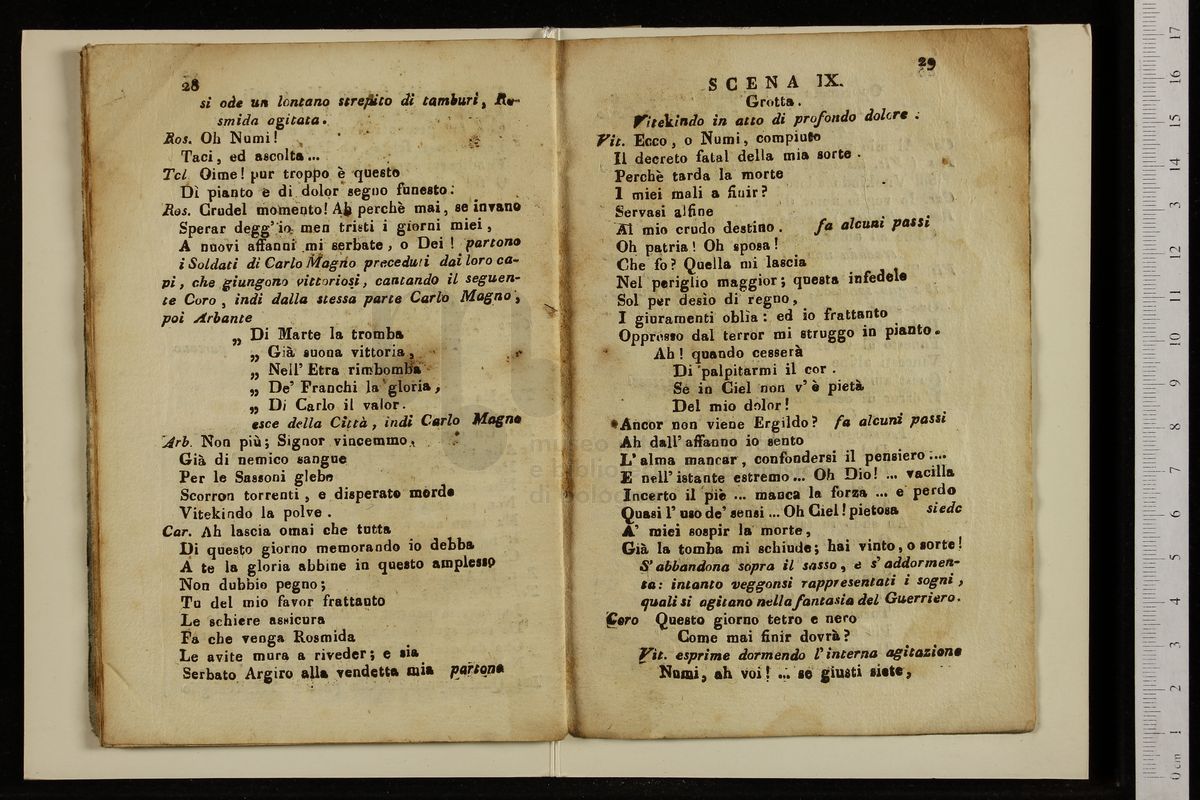 28
si ode un lontano strepito di tamburi, Ro-
smida agitata.
Ros. Oh Numi!
Taci, ed ascolta...
Tcl Oime! pur troppo è questo
Di pianto e di dolor segno funesto.
Ros. Crudel momento! Ah perchè mai, se invano
Sperar degg'io men tristi i giorni miei,
A nuovi affanni mi serbate, o Dei! partono
i Soldati di Carlo Magno preceduti dai loro ca-
pi, che giungono vittoriosi, cantando il seguen-
te Coro, indi dalla stessa parte Carlo Magno,
poi Arbante
„ Di Marte la tromba
„ Già suona vittoria,
„ Nell' Etra rimbomba
„ De' Franchi la gloria,
„ Di Carlo il valor.
esce della Città, indi Carlo Magno
Arb. Non più; Signor vincemmo,
Già di nemico sangue
Per le Sassoni glebe
Scorron torrenti, e disperato morde
Vitekindo la polve.
Car. Ah lascia omai che tutta
Di questo giorno memorando io debba
A te la gloria abbine in questo amplesso
Non dubbio pegno;
Tu del mio favor frattanto
Le schiere assicura
Fa che venga Rosmida
Le avite mura a riveder; e sia
Serbato Argiro alla vendetta mia partono
29
SCENA IX.
Grotta.
Vitekindo in atto di profondo dolore.
Vit. Ecco, o Numi, compiuto
Il decreto fatal della mia sorte.
Perchè tarda la morte
I miei mali a finir?
Servasi alfine
Al mio crudo destino. fa alcuni passi
Oh patria! Oh sposa!
Che fo? Quella mi lascia
Nel periglio maggior; questa infedele
Sol per desìo di regno,
I giuramenti oblìa: ed io frattanto
Oppresso dal terror mi struggo in pianto.
Ah! quando cesserà
Di palpitarmi il cor.
Se in Ciel non v'è pietà
Del mio dolor!
Ancor non viene Ergildo? fa alcuni passi
Ah dall' affanno io sento
L'alma mancar, confondersi il pensiero....
E nell' istante estremo... Oh Dio! ... vacilla
Incerto il piè ... manca la forza ... e perdo
Quasi l' uso de' sensi ... Oh Ciel! pietosa siede
A' miei sospir la morte,
Già la tomba mi schiude; hai vinto, o sorte!
S'abbandona sopra il sasso, e s'addormen-
ta: intanto veggonsi rappresentati i sogni,
quali si agitano nella fantasia del Guerriero.
Coro Questo giorno tetro e nero
Come mai finir dovrà?
Vit. esprime dormendo l'interna agitazione
Numi, ah voi! ... se giusti siete,
museo
e biblio
di bolo
0 cm 1 2 3 4 5 6 7 8 9 10 11 12 13 14 15 16 17